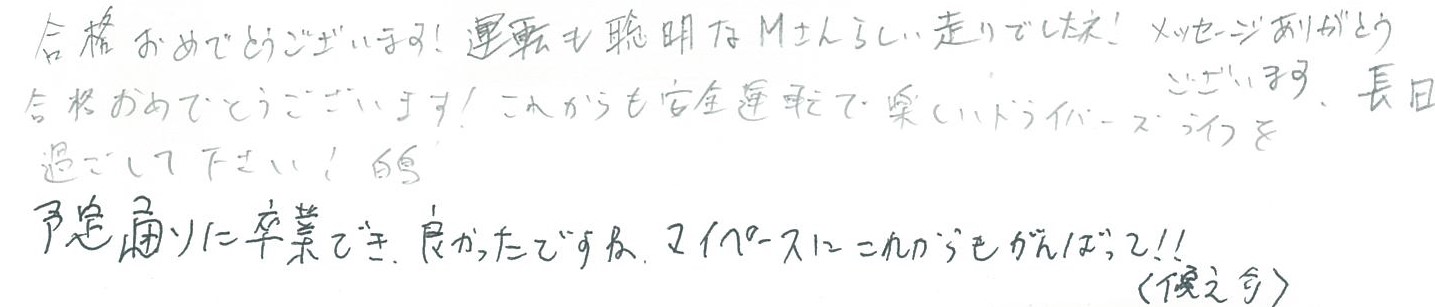 合格おめでとうございます!運転も聡明なMさんらしい走りでしたネ!メッセージありがとう
ございます、長田
合格おめでとうございます!これからも安全運転で楽しいドライバーズライフを
過ごして下さい!白鳥
予定通りに卒業でき、良かったですね。マイペースにこれからもがんばって!!